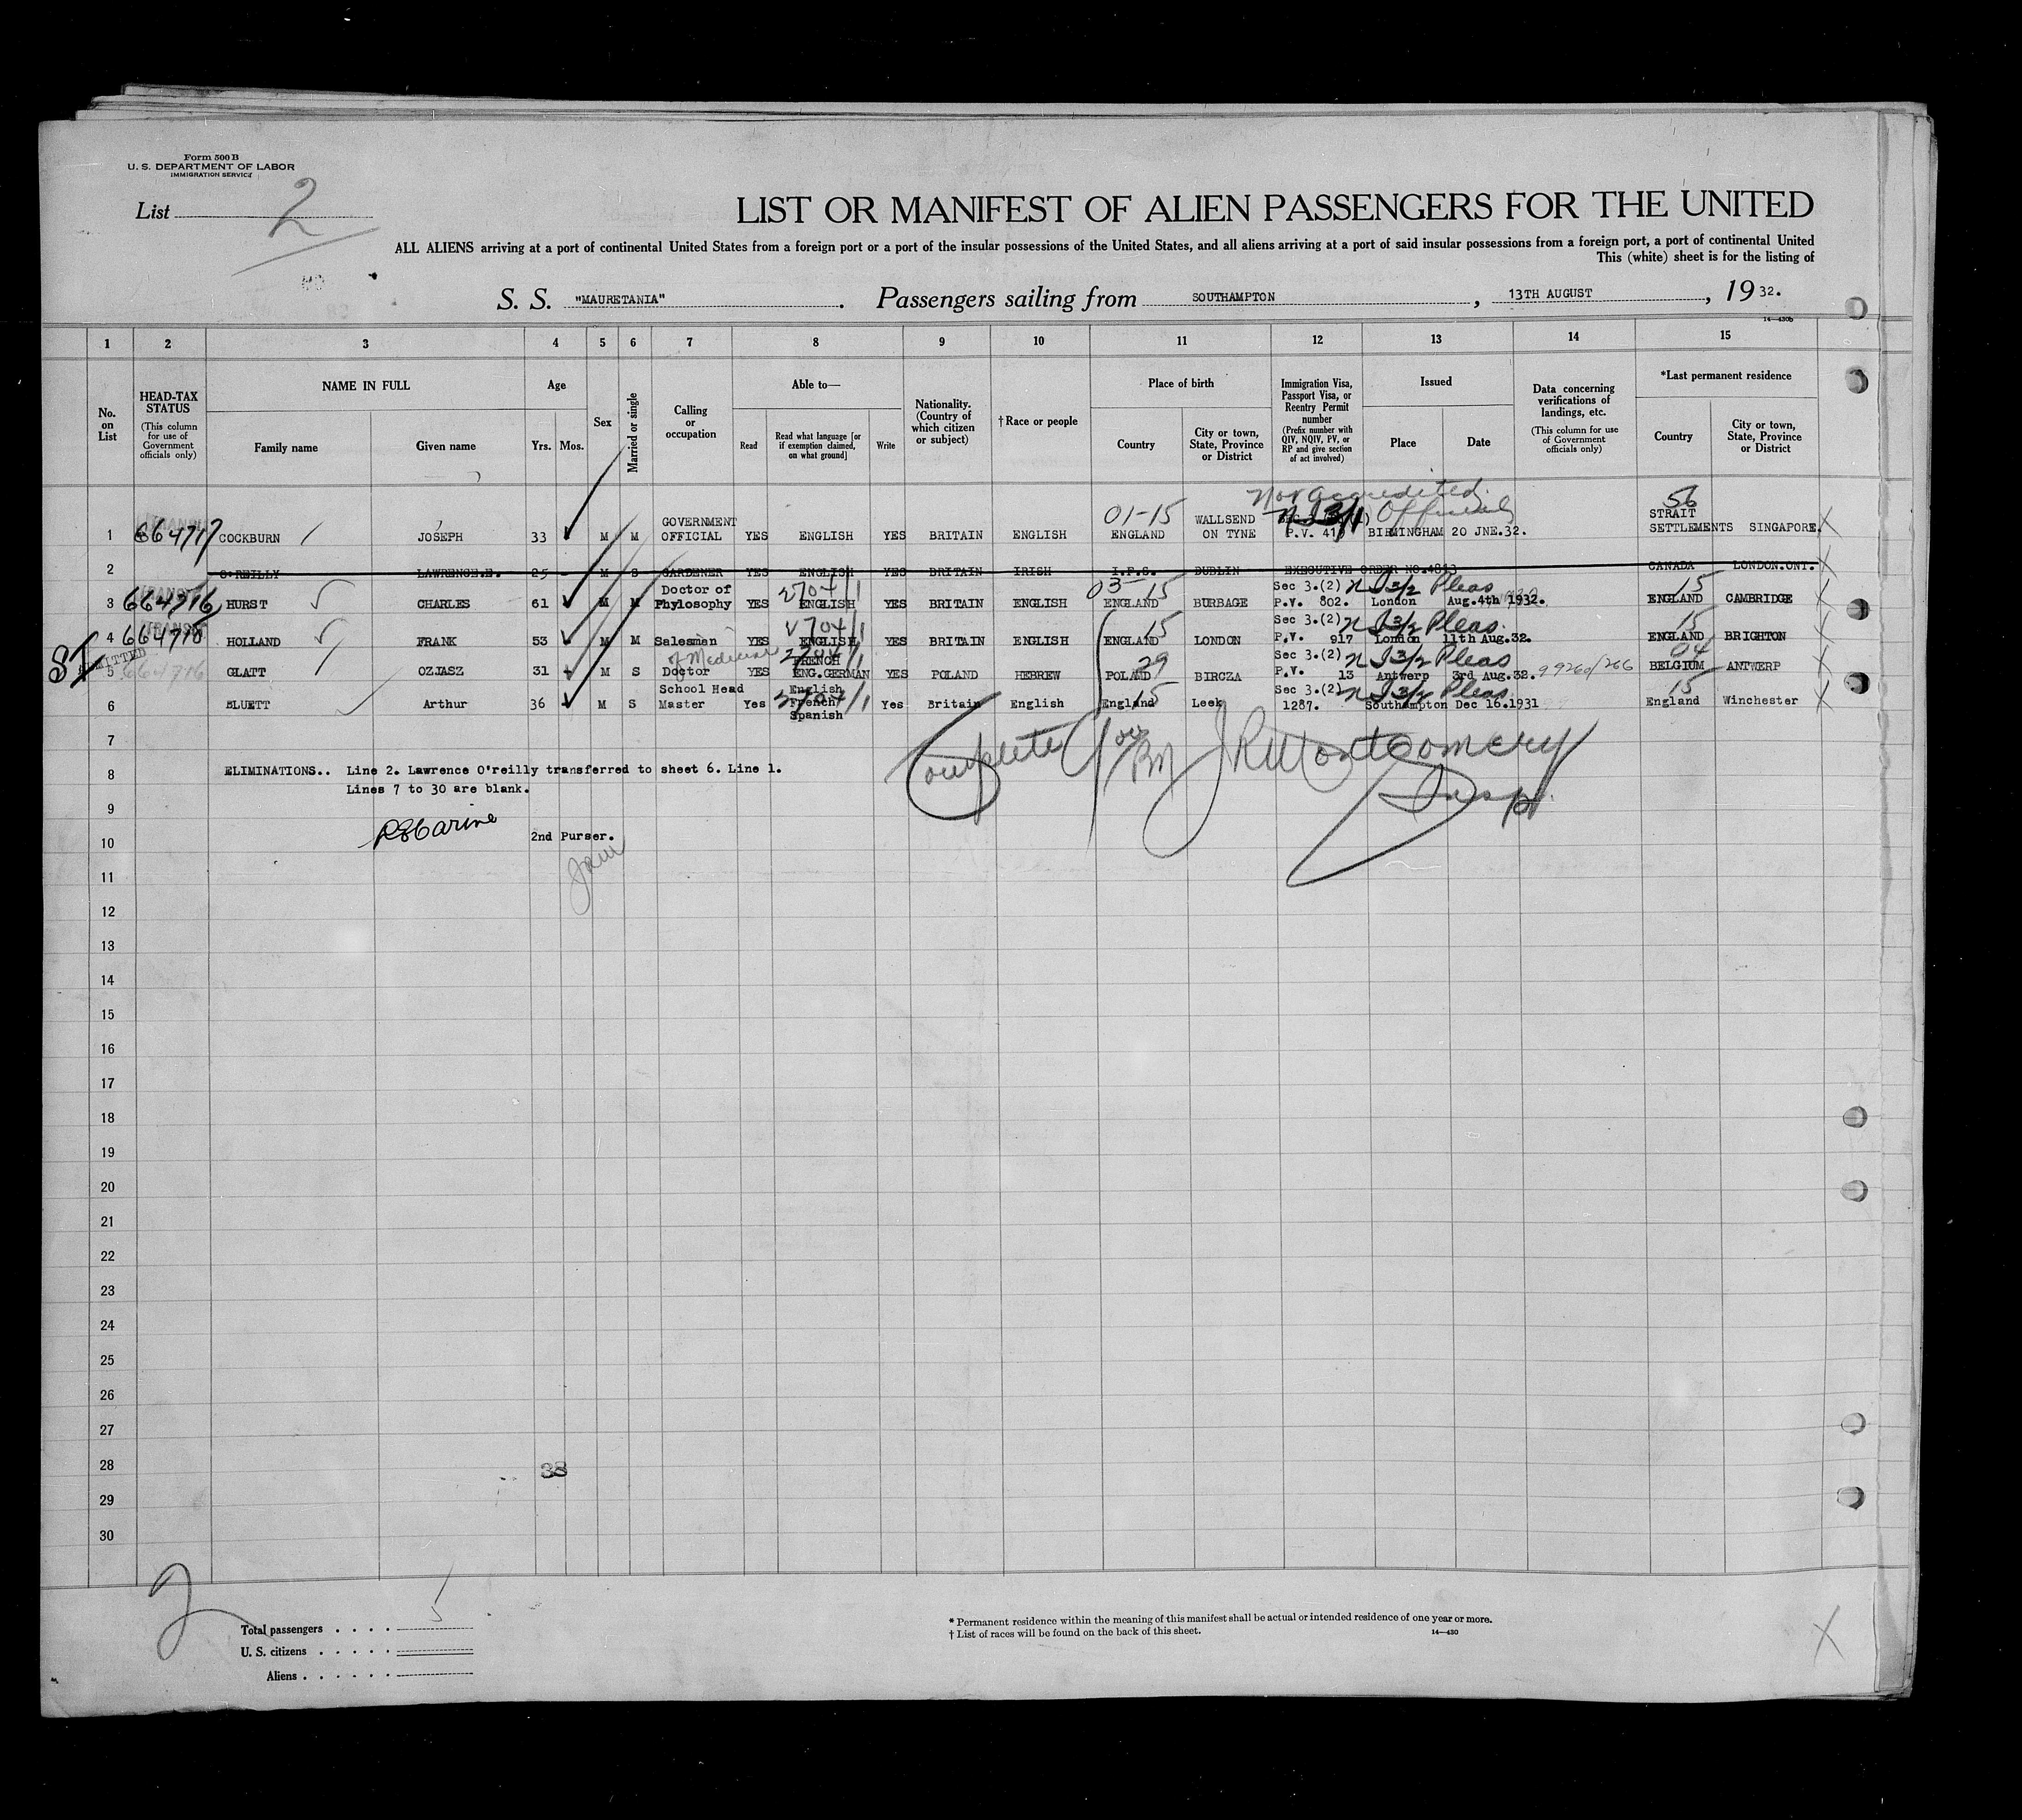 Form 500 B
U. S. DEPARTMENT OF LABOR
IMMIGRATION SERVICE
List 2
LIST OR MANIFEST OF ALIEN PASSENGERS FOR THE UNITED
ALL ALIENS arriving at a port of continental United States from a foreign port or a port of the insular possessions of the United States, and all aliens arriving at a port of said insular possessions from a foreign port, a port of continental United
This (white) sheet is for the listing of
S. S. "MAURETANIA". Passengers sailing from SOUTHAMPTON, 13TH AUGUST, 19 32.
14—430b
1 2 3 4 5 6 7 8 9 10 11 12 13 14 15
No. on List
HEAD-TAX STATUS
(This column for use of Government officials only)
NAME IN FULL
Family name
Given name
Age
Yrs. Mos.
Sex
Married or single
Calling or occupation
Able to—
Read
Read what language [or if exemption claimed, on what ground]
Write
Nationality. (Country of which citizen or subject)
† Race or people
Place of birth
Country
City or town, State, Province or District
Immigration Visa, Passport Visa, or Reentry Permit number
(Prefix number with QIV, NQIV, PV, or RP and give section of act involved)
Issued
Place
Date
Data concerning verifications of landings, etc.
(This column for use of Government officials only)
*Last permanent residence
Country
City or town, State, Province or District
Official 56
1 664717 COCKBURN JOSEPH 33 M M GOVERNMENT OFFICIAL YES ENGLISH YES BRITAIN ENGLISH 01-15 ENGLAND WALLSEND ON TYNE P.V. BIRMINGHAM 20 JNE.32. STRAIT SETTLEMENTS SINGAPORE.
2 O'REILLY LAWRENCE.E. 25 M S GARDENER YES ENGLISH YES BRITAIN IRISH I.F.S. DUBLIN EXECUTIVE ORDER NO.4813 CANADA LONDON.ONT.
3 664716 HURST CHARLES 61 M M Doctor of Phylosophy YES ENGLISH YES BRITAIN ENGLISH 03-15 ENGLAND BURBAGE Sec 3.(2) P.V. 802. 3/2 Pleas London Aug.4th 1932. 15 ENGLAND CAMBRIDGE
4 664718 HOLLAND FRANK 53 M M Salesman YES ENGLISH YES BRITAIN ENGLISH 15 ENGLAND LONDON Sec 3.(2) P.V. 917 3/2 Pleas. London 11th Aug.32. 15 ENGLAND BRIGHTON
SI
5 664716 GLATT OZJASZ 31 M S of Medicine Doctor YES FRENCH ENG.GERMAN YES POLAND HEBREW 29 POLAND BIRCZA Sec 3.(2) P.V. 13 3/2 Pleas Antwerp 3rd Aug.32. 04 BELGIUM ANTWERP
6 BLUETT Arthur 36 M S School Head Master Yes English French Spanish Yes Britain English 15 England Leek Sec 3.(2) 1287. 3/2 Pleas. Southampton Dec 16.1931 15 England Winchester
7
8 ELIMINATIONS.. Line 2. Lawrence O'reilly transferred to sheet 6. Line 1.
Lines 7 to 30 are blank.
Complete JRMontgomery
Insp.
9
10 2nd Purser.
11
12
13
14
15
16
17
18
19
20
21
22
23
24
25
26
27
28 38
29
30
2
Total passengers . . . . 5
U. S. citizens . . . . .
Aliens . . . . . .
* Permanent residence within the meaning of this manifest shall be actual or intended residence of one year or more.
† List of races will be found on the back of this sheet.
14—430